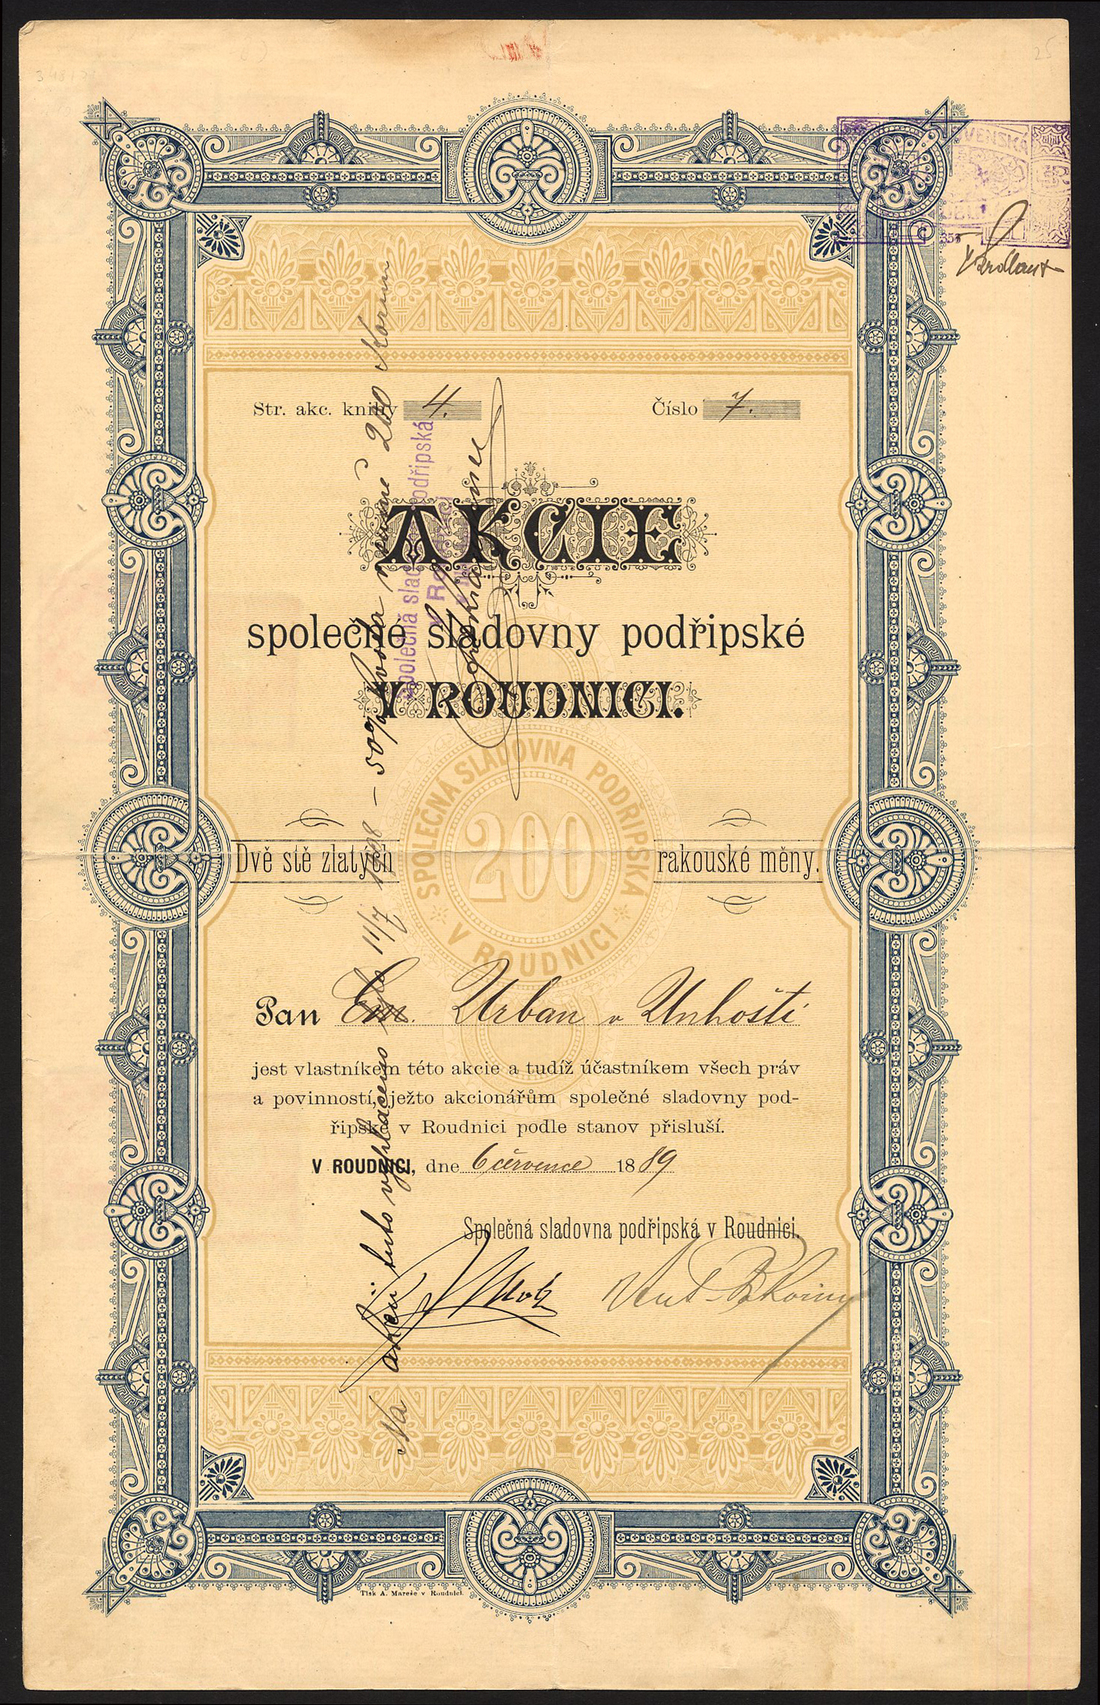 Str. akc. knihy 4.
Číslo 7.
AKCIE
společné sladovny podřipské
V ROUDNICI.
SPOLEČNÁ SLADOVNA PODŘIPSKÁ
200
V ROUDNICI
Dvě stě zlatých rakouské měny.
Pan Em. Urban v Unhošti
jest vlastníkem této akcie a tudíž účastníkem všech práv
a povinností, ježto akcionářům společné sladovny pod-
řipské v Roudnici podle stanov přisluší.
V ROUDNICI, dne 6 července 1889
Společná sladovna podřipská v Roudnici.
Tisk A. Mareše v Roudnici.
Na akcii tuto vyplaceno bylo 11/7 1898 – 50% kvota 200 Korun
Společná sladovna podřipská